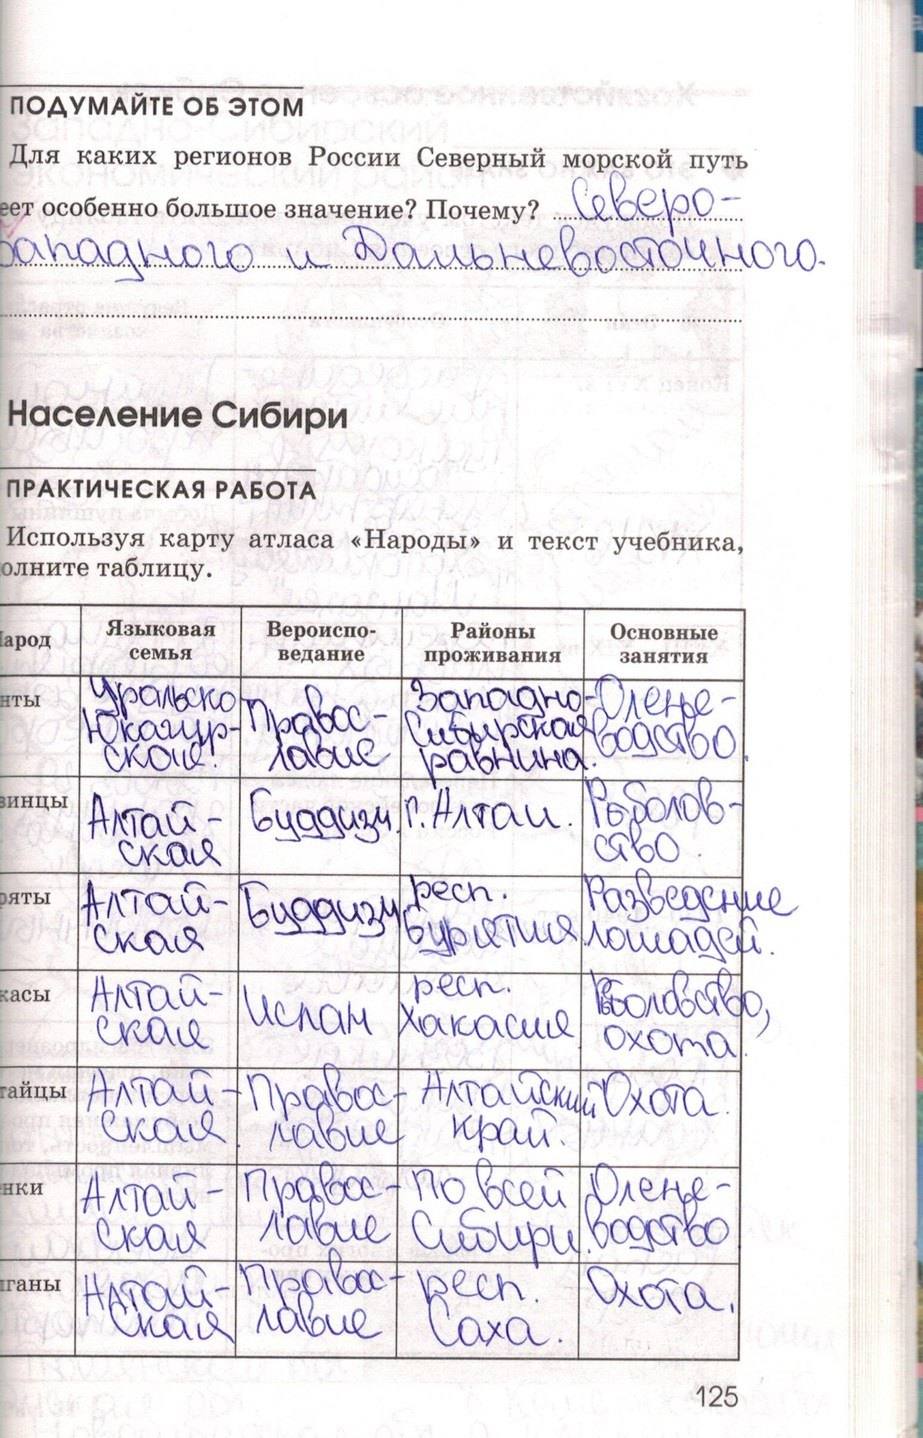 ПОДУМАЙТЕ ОБ ЭТОМ
Для каких регионов России Северный морской путь
еет особенно большое значение? Почему? Северо-
западного и Дальневосточного.
Население Сибири
ПРАКТИЧЕСКАЯ РАБОТА
Используя карту атласа «Народы» и текст учебника,
олните таблицу.
арод
Языковая
семья
Вероиспо-
ведание
Районы
проживания
Основные
занятия
нты
Уральско
Юкагир-
ская.
Правос-
лавие
Западно-
Сибирская
равнина.
Олене-
водство.
винцы
Алтай-
ская
Буддизм.
г. Алтаи.
Рыболов-
ство.
ряты
Алтай-
ская
Буддизм
респ.
Бурятия
Разведение
лошадей.
касы
Алтай-
ская
Ислам
респ.
Хакасия
Рыболовство,
охота.
тайцы
Алтай-
ская.
Правос-
лавие
Алтайский
край.
Охота.
нки
Алтай-
ская
Правос-
лавие
По всей
Сибири.
Олене-
водство
лганы
Алтай-
ская
Правос-
лавие
респ.
Саха.
Охота.
125